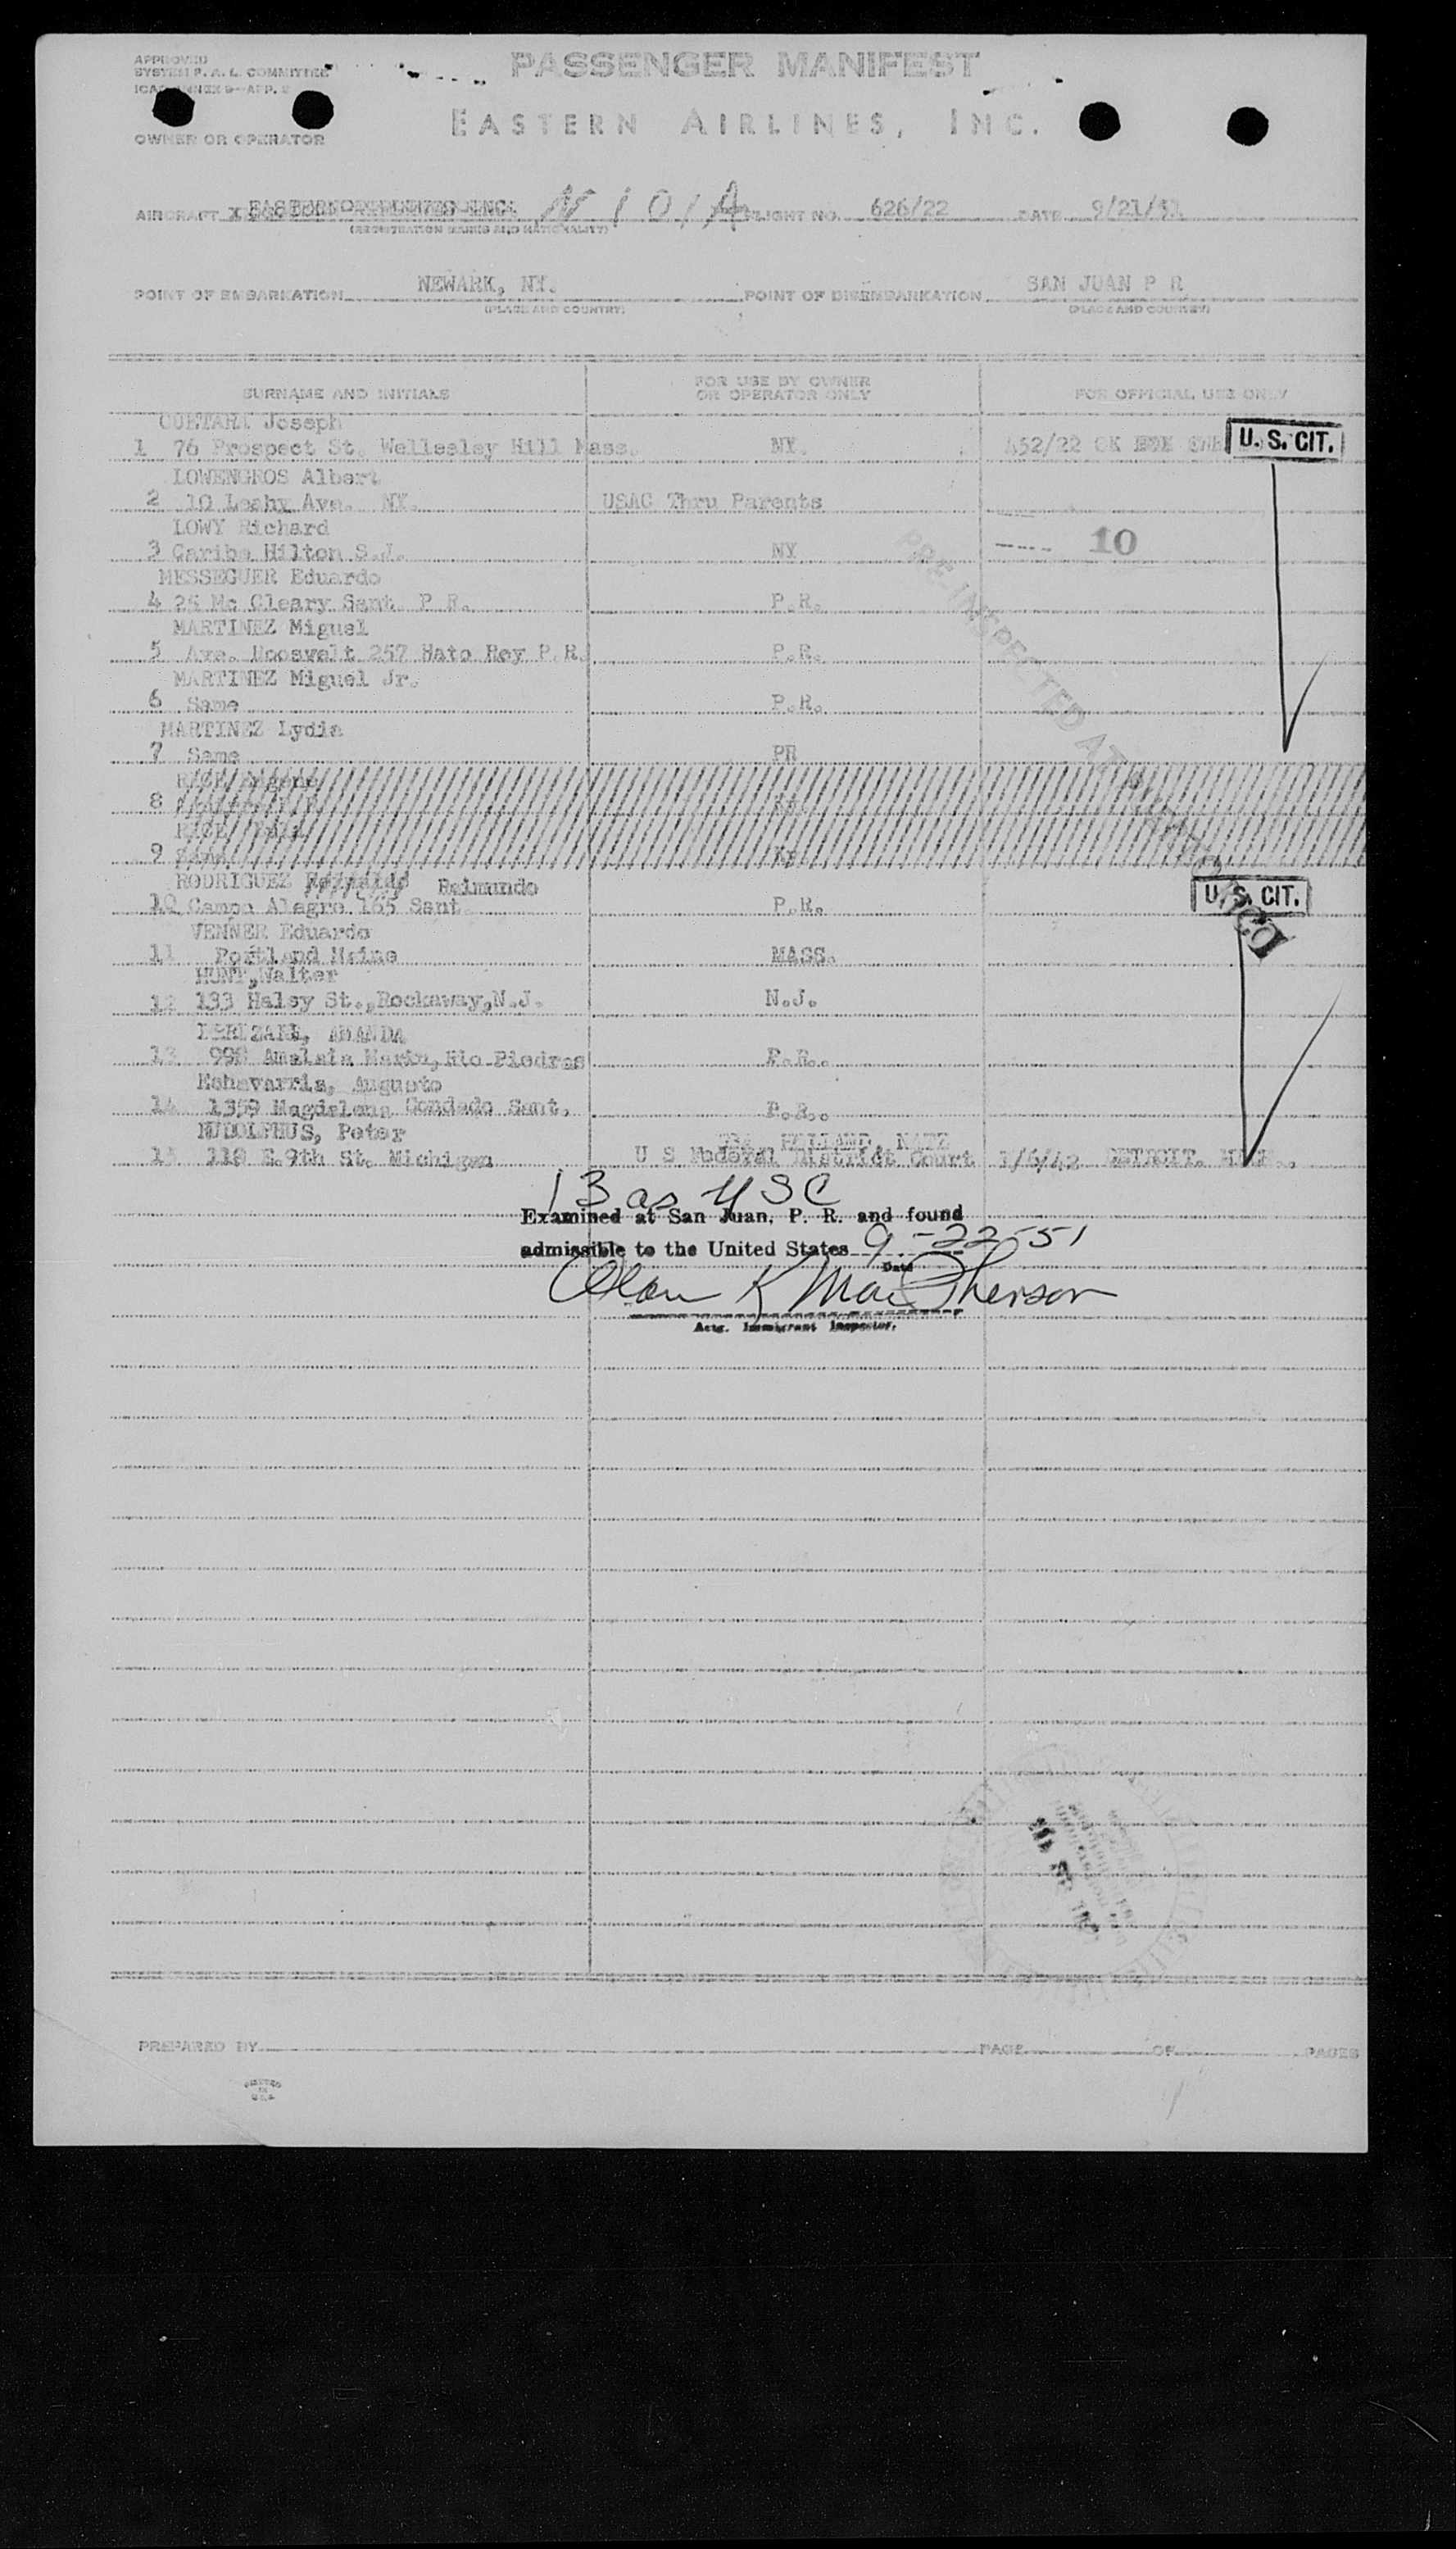 APPROVED
SYSTEM P. A. L. COMMITTEE
ICAO ANNEX 9—APP.
PASSENGER MANIFEST
EASTERN AIRLINES, INC.
OWNER OR OPERATOR
AIRCRAFT N101A FLIGHT NO. 626/22 DATE 9/21/51
(REGISTRATION MARKS AND NATIONALITY)
POINT OF EMBARKATION NEWARK, NY. POINT OF DISEMBARKATION SAN JUAN P R
(PLACE AND COUNTRY) (PLACE AND COUNTRY)
SURNAME AND INITIALS FOR USE BY OWNER OR OPERATOR ONLY FOR OFFICIAL USE ONLY
CUETARA Joseph
1 76 Prospect St. Wellesley Hill Mass. NY. 452/22 OK U. S. CIT.
LOWENGROS Albert
2 10 Leahy Ave. NY. USAC Thru Parents
LOWY Richard
3 Caribe Hilton S.J. NY 10
MESSEGUER Eduardo
4 25 Mc Cleary Sant. P.R. P.R.
MARTINEZ Miguel
5 Ave. Roosvelt 257 Hato Rey P.R. P.R.
MARTINEZ Miguel Jr.
6 Same P.R.
MARTINEZ Lydia
7 Same PR
PRE-INSPECTED AT
RICE
8
RICE
9 Same
RODRIGUEZ Reinaldo Raimundo
10 Campo Alegre 165 Sant. P.R. U. S. CIT.
VENNER Eduardo
11 Portland Maine MASS.
HUNT, Walter
12 133 Halsy St., Rockaway, N.J. N.J.
AMANDA
13 998 Marin, Rio Piedras P.R.
Echavarria, Augusto
14 1359 Magdalena Condado Sant. P.R.
RUDOLPHUS, Peter HOLLAND,
15 118 E.9th St. Michigan U S Federal District Court 1/6/42 DETROIT.
13 as USC
Examined at San Juan, P. R. and found
admissible to the United States 9-22-51
Date
Alan K MacPherson
Actg. Immigrant Inspector.
PREPARED BY PAGE OF PAGES
PRINTED
IN
U.S.A.